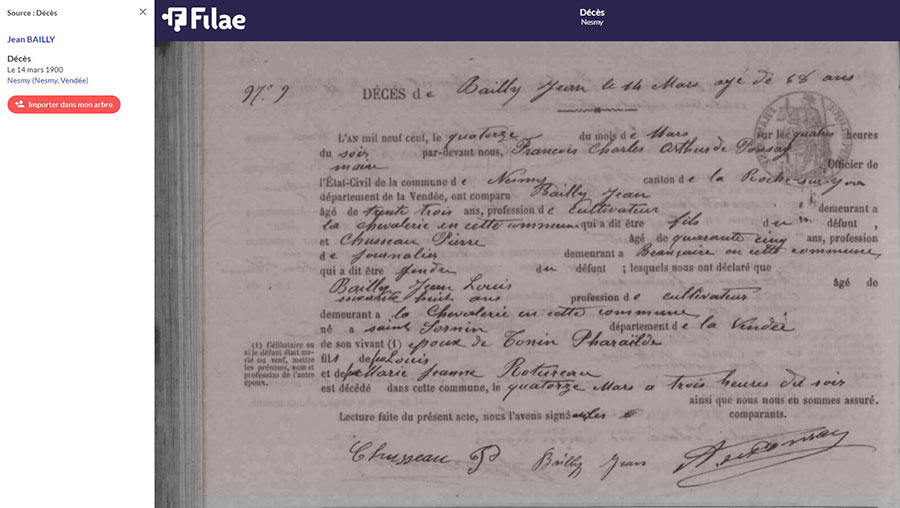 Source : Décès
Jean BAILLY
Décès
Le 14 mars 1900
Nesmy (Nesmy, Vendée)
Importer dans mon arbre
Filae
Décès
Nesmy
N° 9 DÉCÈS de Bailly Jean le 14 Mars agé de 68 ans
L'AN mil neuf cent, le quatorze du mois de Mars sur les quatre heures
du soir par-devant nous, Francois Charles Arthur de
maire Officier de
l'État-Civil de la commune de Nesmy canton de la Roche-sur-yon
département de la Vendée, ont comparu Bailly Jean
âgé de trente trois ans, profession de cultivateur demeurant a
la chevalerie en cette commune qui a dit être fils du défunt ,
et Chusseau Pierre âgé de quarante cinq ans, profession
de journalier demeurant a en cette commune
qui a dit être gendre du défunt ; lesquels nous ont déclaré que
Bailly Jean Louis âgé de
soixante huit ans profession de cultivateur
demeurant a la Chevalerie en cette commune
né a saint Sornin département de la Vendée
de son vivant (1) époux de Tonin Pharaïlde
fils de feu Louis
et de feu Marie Jeanne Rotureau
est décédé dans cette commune, le quatorze Mars a trois heures du soir
ainsi que nous nous en sommes assuré.
Lecture faite du présent acte, nous l'avons signé avec les comparants.
(1) Célibataire ou
si le défunt était ma-
rié ou veuf, mettre
les prénoms, nom et
profession de l'autre
époux.
Chusseau P Bailly Jean